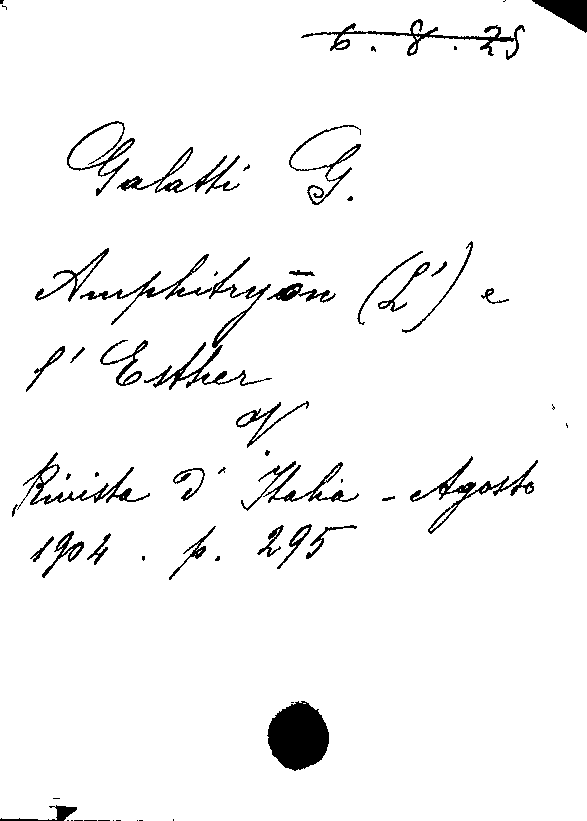 6. 8. 25
Galatti G.
Amphitryōn (L') e
l'Esther
V
Rivista d'Italia - Agosto
1904. p. 295